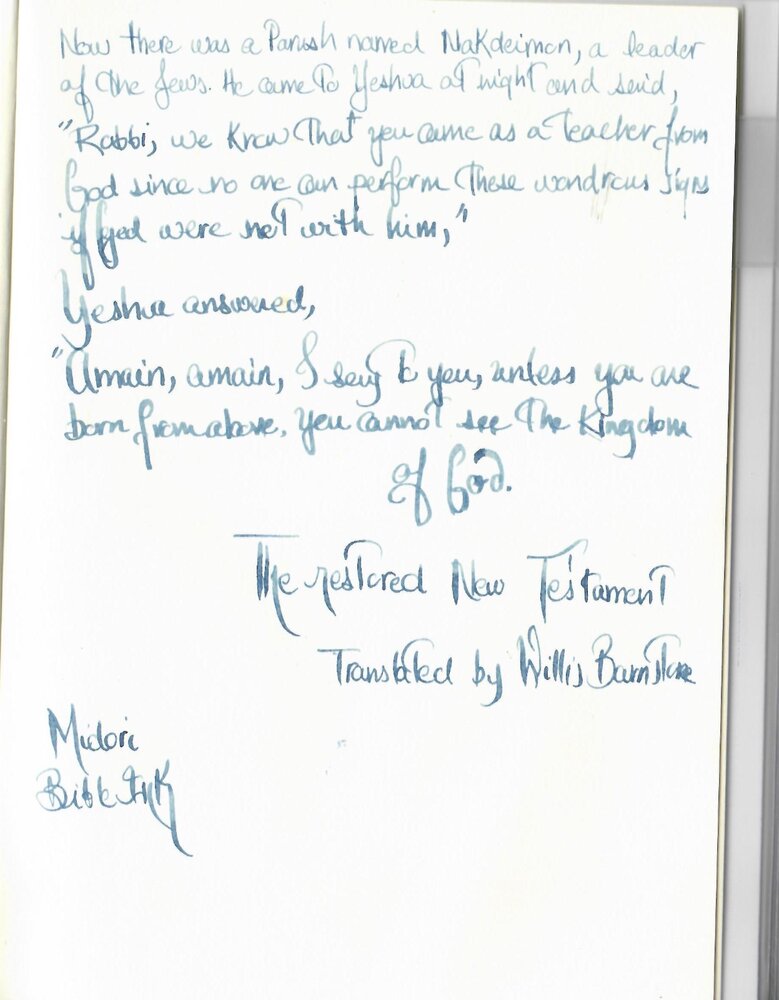 Now there was a Parush named Nakdeimon, a leader
of the Jews. He came to Yeshua at night and said,
"Rabbi, we know that you came as a teacher from
God since no one can perform these wondrous signs
if God were not with him,"
Yeshua answered,
"Amain, amain, I say to you, unless you are
born from above, you cannot see the Kingdom
of God.
The restored New Testament
Translated by Willis Barnstone
Midori
Bible Ink